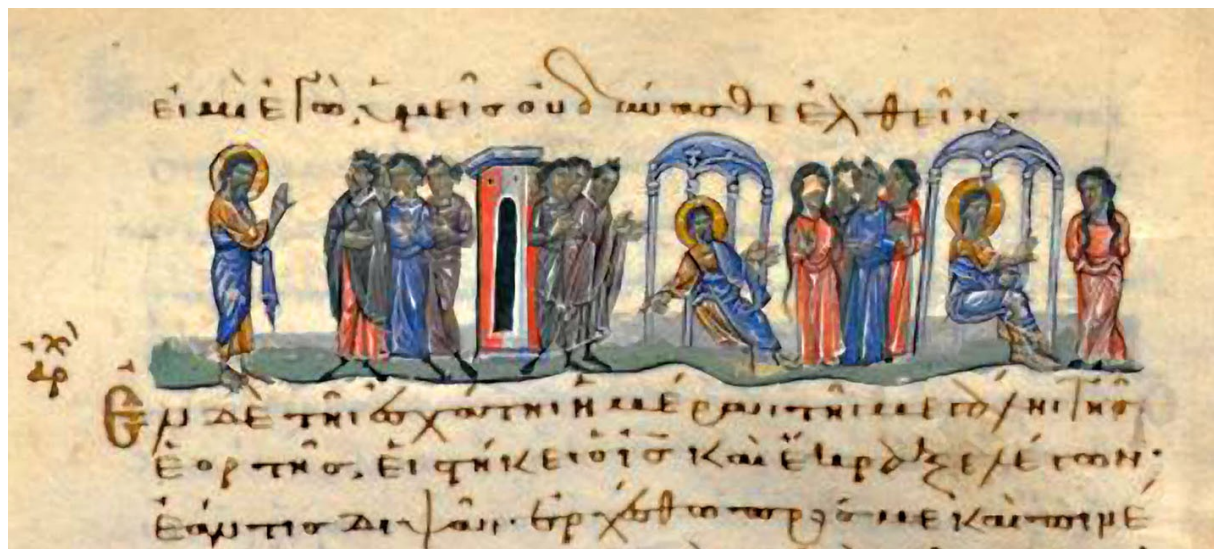 εἰμὶ ἐγὼ, ὑμεῖς οὐ δύνασθε ἐλθεῖν.
ἀρχ
Ἐν δὲ τῆι ἐσχάτηι ἡμέραι τῆι μεγάληι τῆς
ἑορτῆς, εἱστήκει ὁ ἰς καὶ ἔκραζε λέγων·
ἐάν τις διψᾶι· ἐρχέσθω πρός με καὶ πινέ